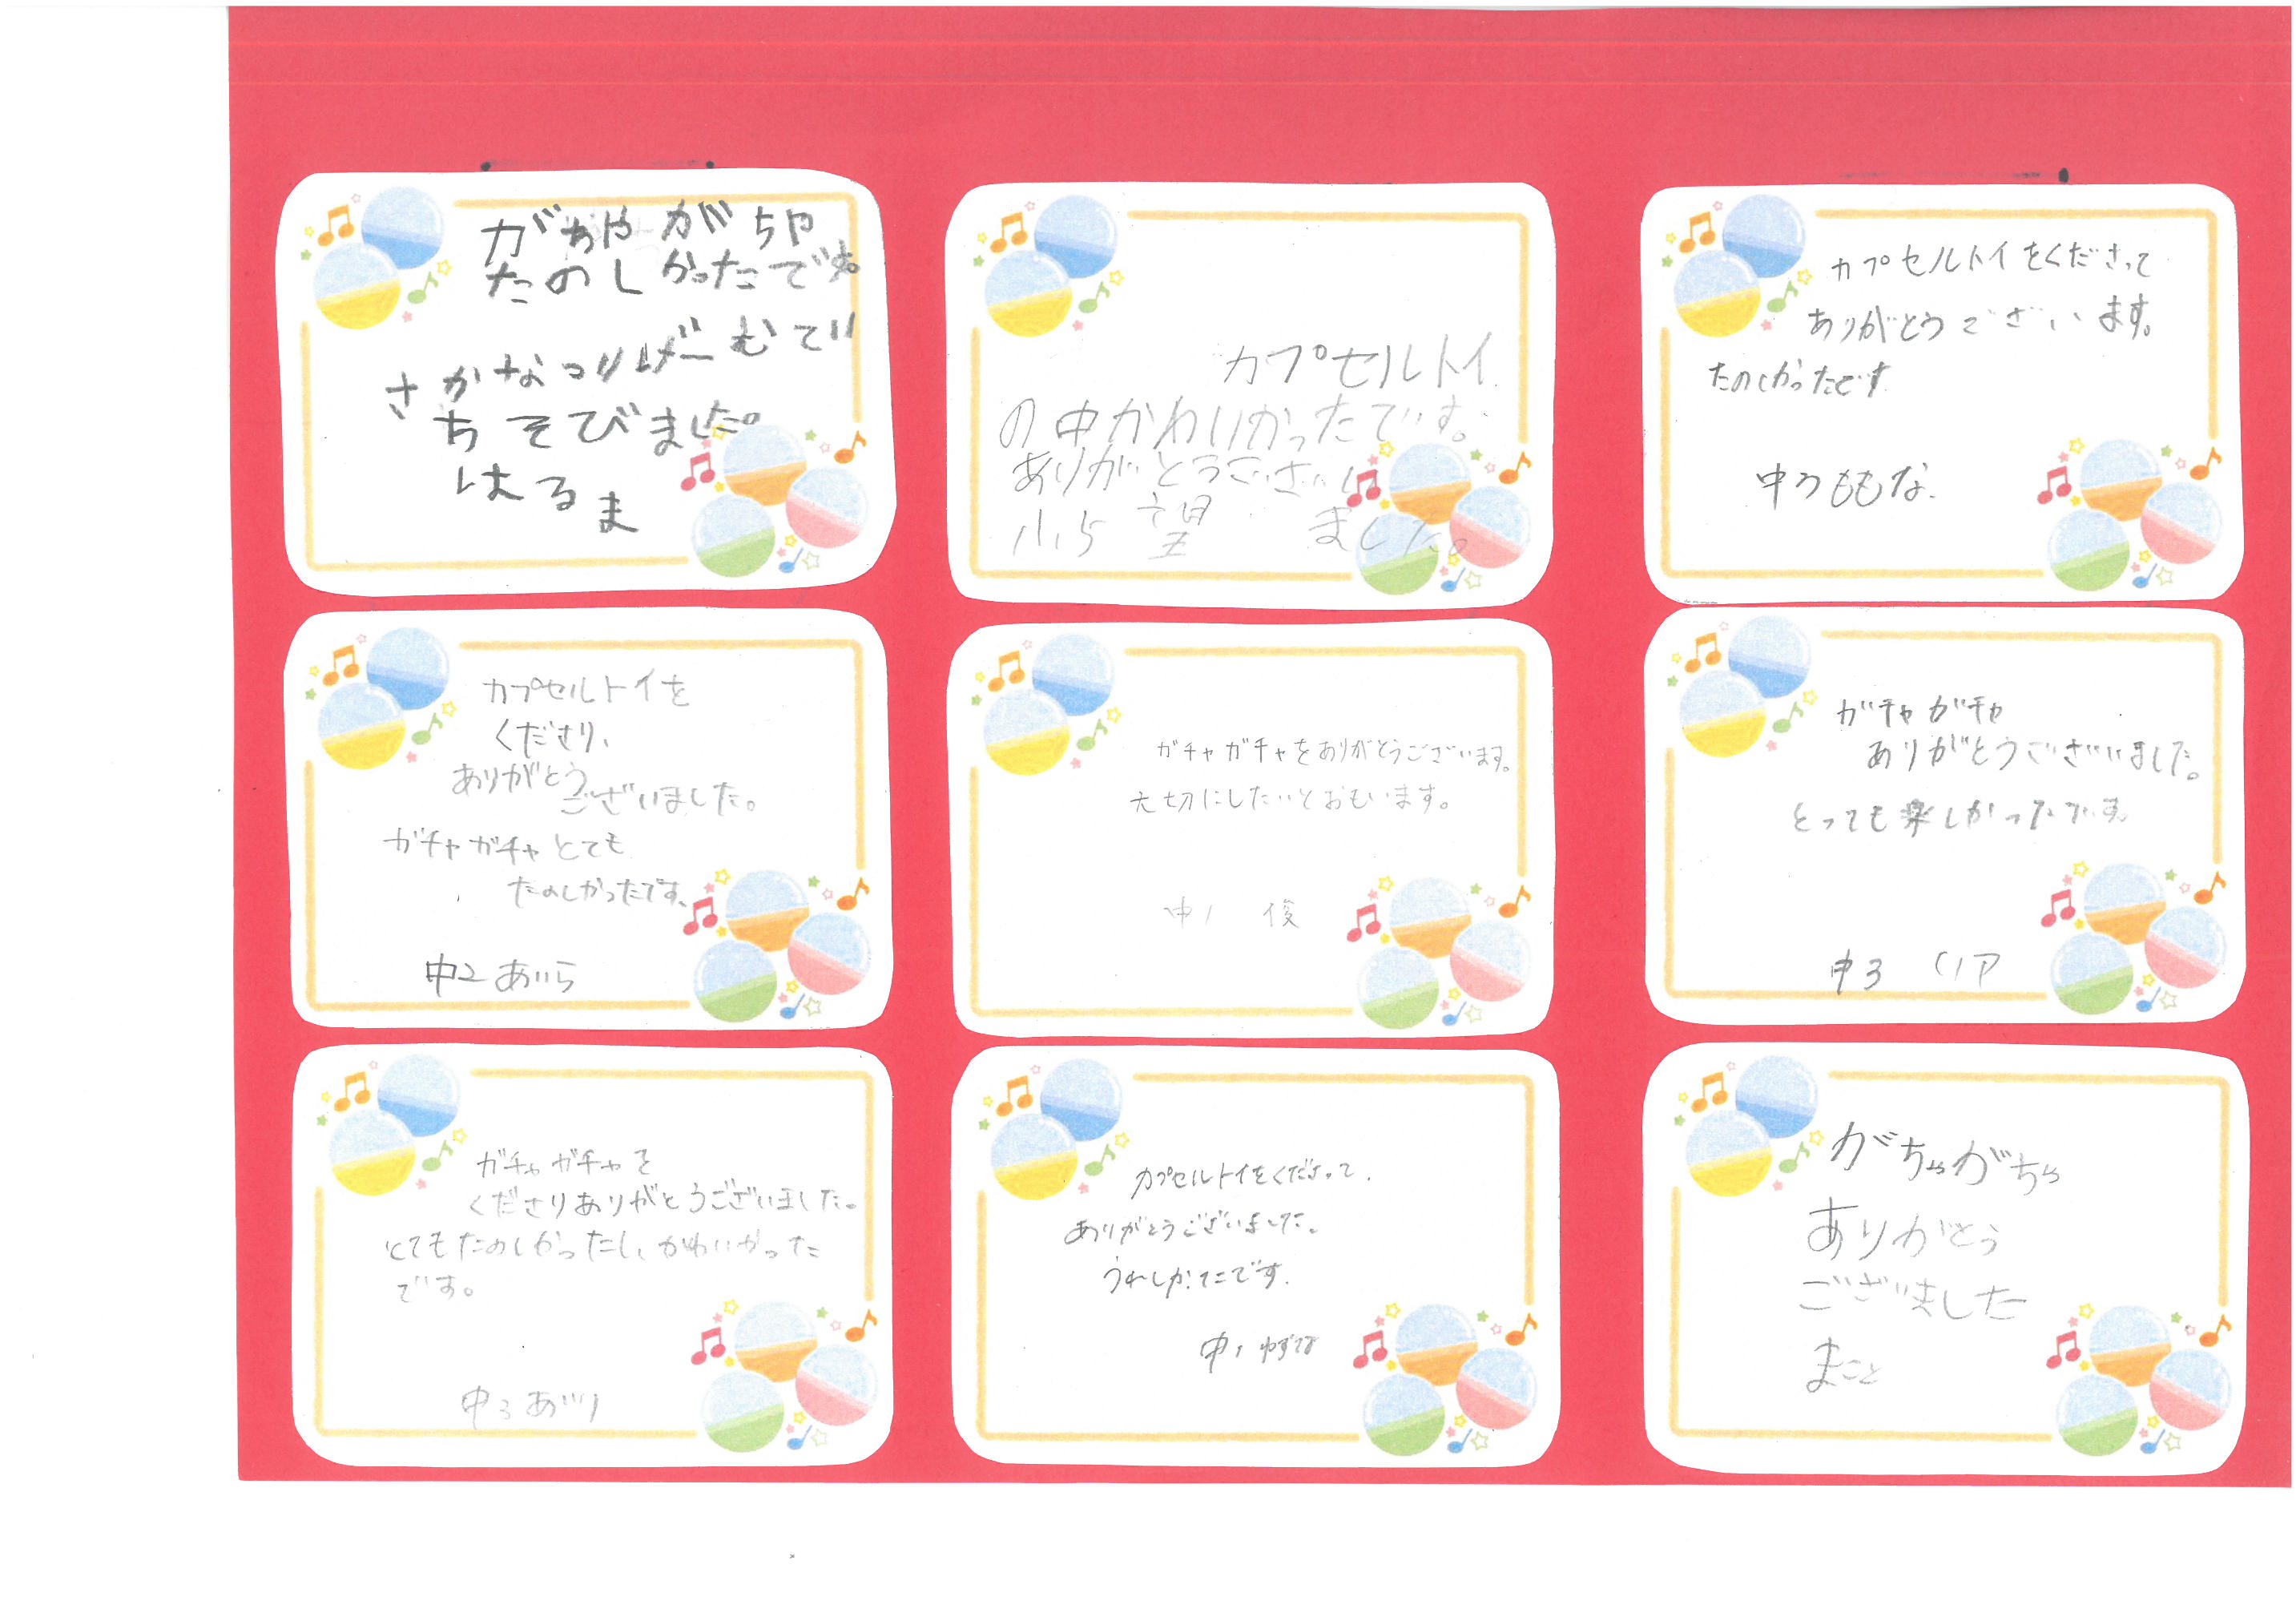 がちゃがちゃ
たのしかったです。
さかなつりげーむで
あそびました。
はるま
カプセルトイ
の中かわいかったです。
ありがとうございい
小5 望 ました。
カプセルトイをくださって
ありがとうございます。
たのしかったです
中3 ももな
カプセルトイを
くださり、
ありがとう
ございました。
ガチャガチャとても
たのしかったです。
中2 あいら
ガチャガチャをありがとうございます。
大切にしたいとおもいます。
中1 俊
ガチャガチャ
ありがとうございいました。
とっても楽しかったです。
中3 リア
ガチャガチャを
くださりありがとうございました。
とてもたのしかったし、かわいかった
です。
中3 あいり
カプセルトイをくださって、
ありがとうございました。
うれしかったです。
中1 ゆずな
がちゃがちゃ
ありがとう
ございました
まこと